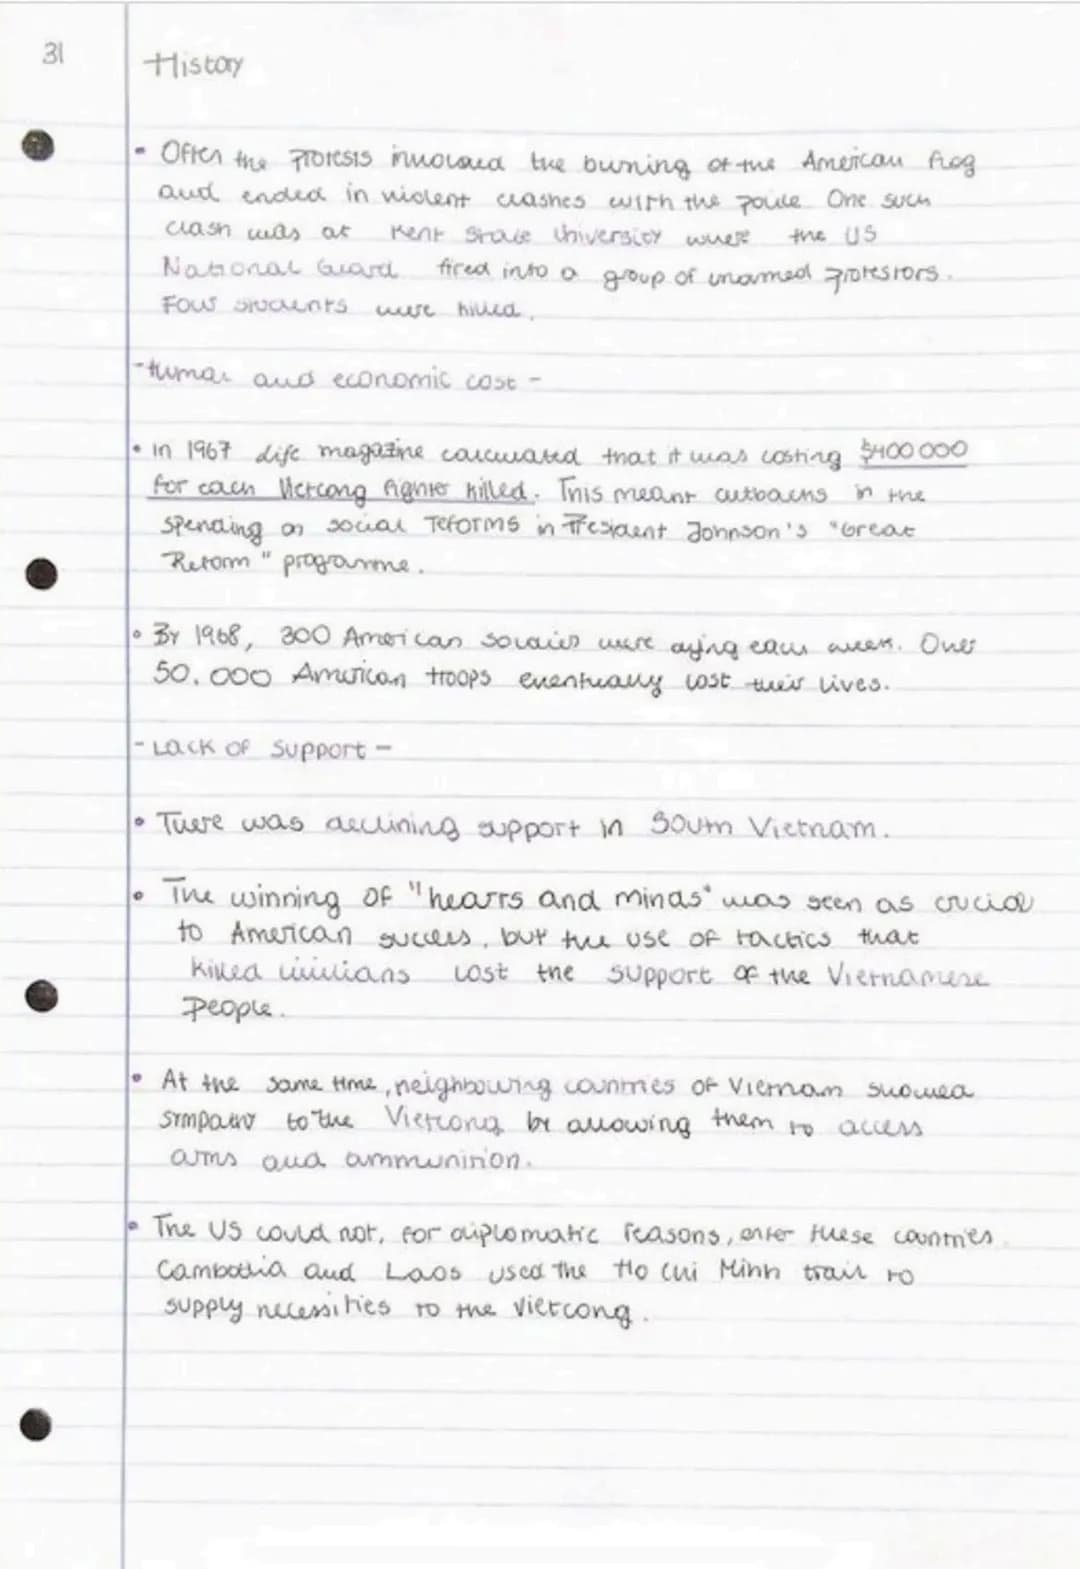 31
History
• Often the protests involved the burning of the American flag
and ended in violent clashes with the police. One such
clash was at Kent State University where the US
National Guard fired into a group of unarmed protestors.
Four students were killed.
- Human and economic cost -
• In 1967 Life magazine calculated that it was costing $400 000
for each Vietcong fighter killed. This meant cutbacks in the
spending on social reforms in President Johnson's "Great
Reform" programme.
• By 1968, 300 American soldiers were dying each week. Over
50,000 American troops eventually lost their lives.
- Lack of support -
• There was declining support in South Vietnam.
• The winning of "hearts and minds" was seen as crucial
to American success, but the use of tactics that
killed civilians lost the support of the Vietnamese
people.
• At the same time, neighbouring countries of Vietnam showed
sympathy to the Vietcong by allowing them to access
arms and ammunition.
• The US could not, for diplomatic reasons, enter these countries.
Cambodia and Laos used the Ho Chi Minh trail to
supply necessities to the Vietcong.